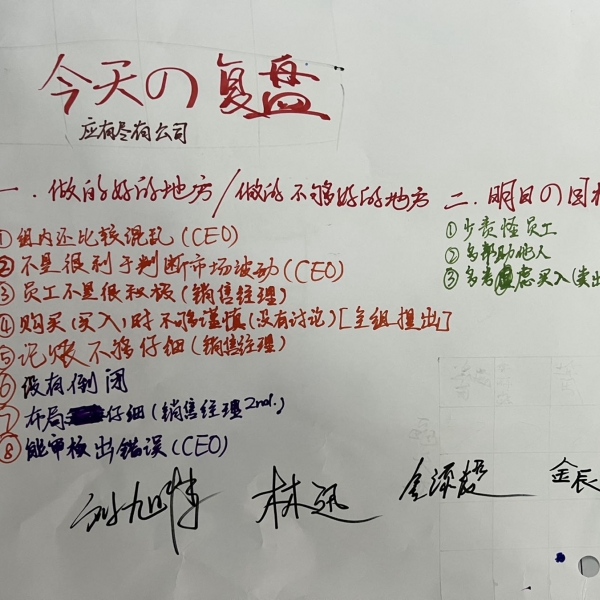 今天の复盘
应有尽有公司
一.做的好的地方/做的不够好的地方
①组内还比较混乱(CEO)
②不是很利于判断市场波动(CEO)
③员工不是很积极(销售经理)
④购买(买入)时不够谨慎(没有讨论)[主组提出]
⑤记账不够仔细(销售经理)
⑥没有倒闭
⑦布局仔细(销售经理2nd.)
⑧能审核出错误(CEO)
二.明日の目标
①少责怪员工
②多帮助他人
③多考虑买入(卖出
林迅
金辰